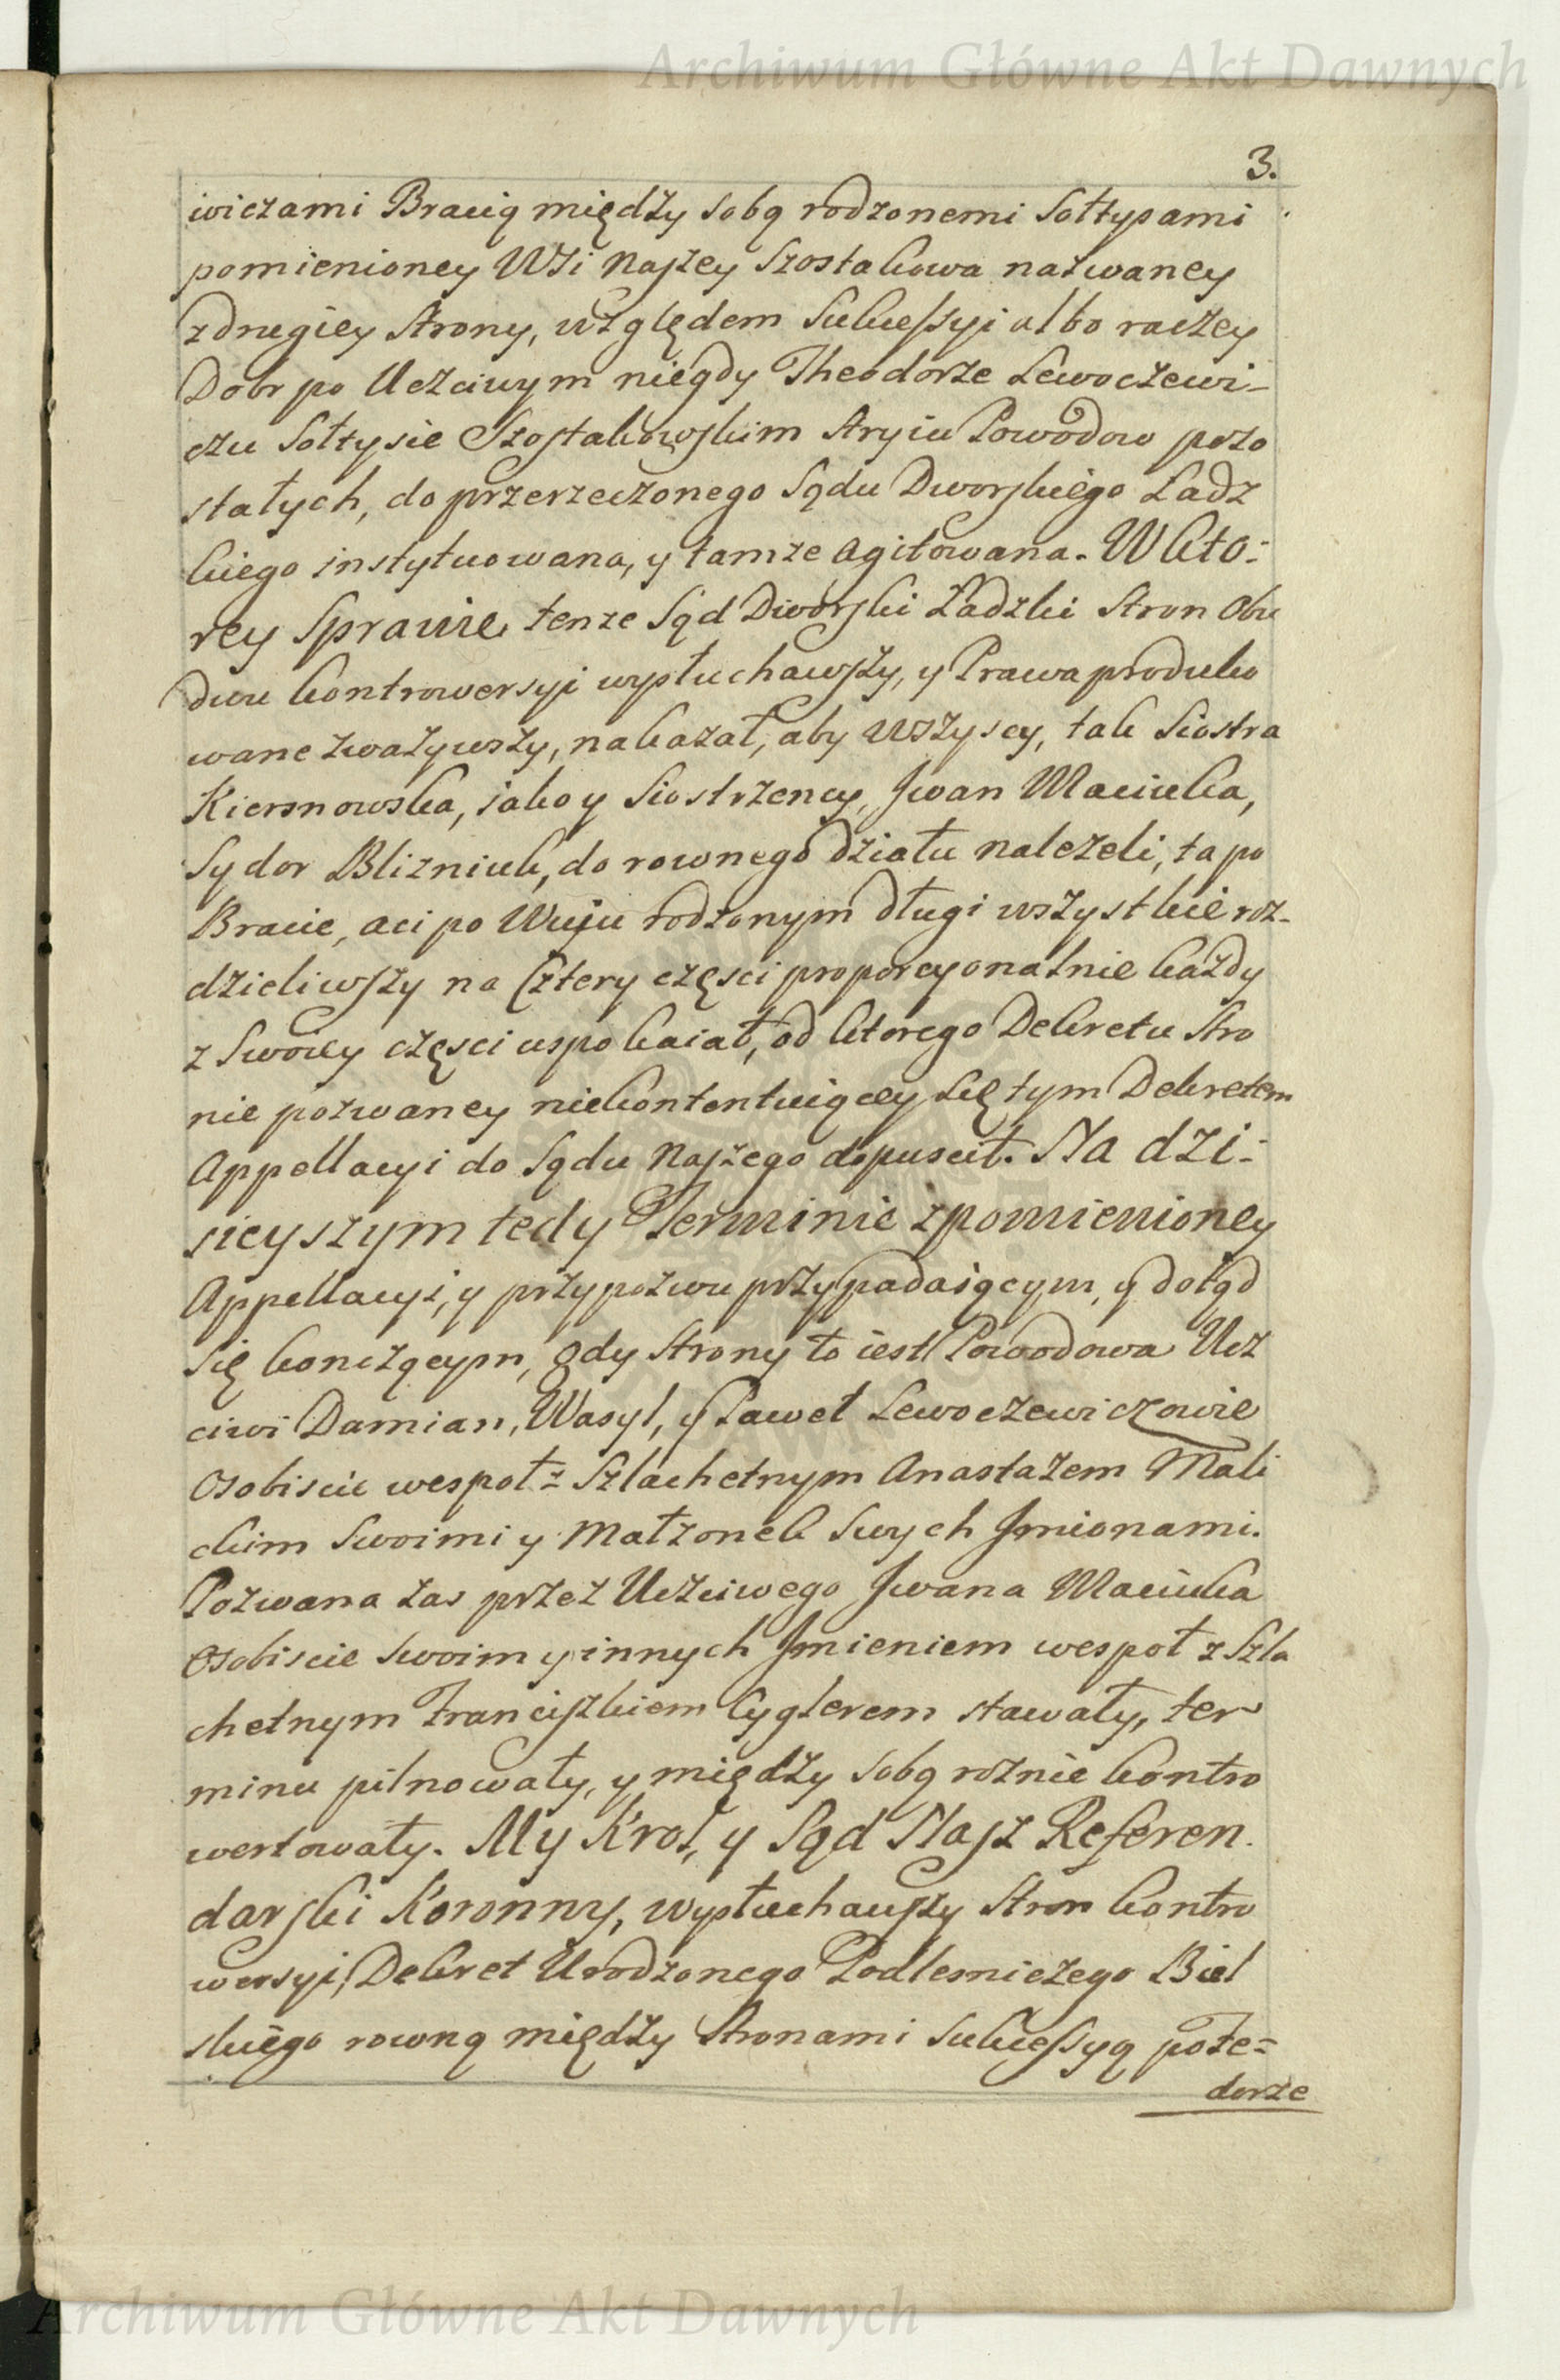 Archiwum Główne Akt Dawnych
3.
wiczami Bracią między sobą rodzonemi Sołtysami
pomienioney Wsi Naszey Szostakowa nazwaney
z drugiey Strony, względem Sukcessyi albo raczey
Dobr po Uczciwym niegdy Theodorze Lewoczewi-
czu Sołtysie Szostakowskim Stryiu Powodow pozo
stałych, do przerzeczonego Sądu Dworskiego Ładz
kiego instytuowana, y tamże agitowana. W kto-
rey Sprawie tenże Sąd Dworski Ładzki Stron Obu
dwu kontrowersyi wysłuchawszy, y Prawa produko
wane zważywszy, nakazał, aby wszyscy, tak Siostra
Kiersnowska, iako y Siostrzency, Jwan Maciuka,
Sydor Blizniuk, do rownego działu należeli, ta po
Bracie, a ci po Wuju rodzonym długi wszystkie roz-
dzieliwszy na Cztery części proporcyonalnie każdy
z Swoiey części uspokaiał, od ktorego Dekretu Stro
nie pozwaney niekontentuiącey się tym Dekretem
Appellacyi do Sądu Naszego dopuscił. Na dzi-
sieyszym tedy Terminie z pomienioney
Appellacyi, y przypozwu przypadaiącym, y dotąd
się konczącym, gdy Strony to iest Powodowa Ucz
ciwi Damian, Wasyl, y Paweł Lewoczewiczowie
Osobiscie wespoł z Szlachetnym Anastazem Mali
ckim Swoimi y Małzonek Swych Jmionami.
Pozwana zas przez Uczciwego Jwana Maciuka
Osobiscie Swoim y innych Jmieniem wespoł z Szla
chetnym Franciszkiem Cyglerem stawały, ter
minu pilnowały, y między sobą roznie kontro
wertowały. My Krol, y Sąd Nasz Referen.
darski Koronny, wysłuchawszy Stron kontro
wersyi, Dekret Urodzonego Podlesniczego Biel
skiego rowną między Stronami Sukcessyą po Te=
dorze
Archiwum Główne Akt Dawnych